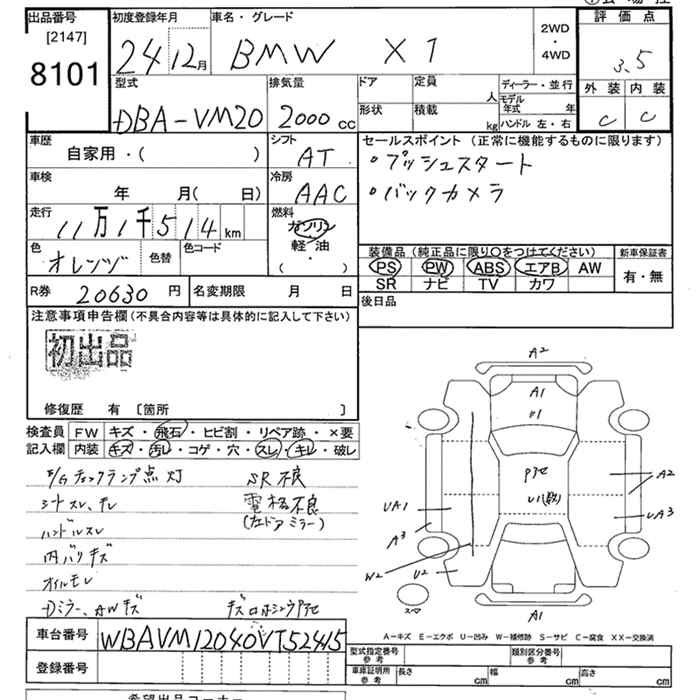 出品番号
[2147]
8101
初度登録年月
24 12月
車名・グレード
BMW X1
2WD
・
4WD
評価点
3.5
外装 内装
C C
型式
DBA-VM20
排気量
2000 cc
ドア
形状
定員
人
積載
kg
ディーラー・並行
モデル年式 年
ハンドル 左・右
車歴
自家用・( )
シフト
AT
車検
年 月( 日)
冷房
AAC
走行
11万1千514 km
燃料
ガソリン
軽油
( )
色
オレンジ
色替
色コード
R券 20630 円
名変期限 月 日
セールスポイント (正常に機能するものに限ります)
・プッシュスタート
・バックカメラ
装備品 (純正品に限り○をつけてください)
PS PW ABS エアB AW
SR ナビ TV カワ
新車保証書
有・無
後日品
注意事項申告欄 (不具合内容等は具体的に記入して下さい)
初出品
修復歴 有 〔箇所 〕
検査員記入欄
FW キズ・飛石・ヒビ割・リペア跡・×要
内装 キズ・汚レ・コゲ・穴・スレ・キレ・破レ
E/Gチェックランプ点灯 SR不良
シートスレ、キレ 電格不良
(左ドアミラー)
ハンドルスレ
内バリキズ
オイルモレ
Dミラー、AWキズ
A2
A1
U1
UA1
A3
W2
U2
A2
UA3
A1
A-キズ E-エクボ U-凹み W-補修跡 S-サビ C-腐食 XX-交換済
車台番号 WBAVM12040VT52415
登録番号
型式指定番号
参考
類別区分番号
参考
車庫証明用
参考
長さ cm
幅 cm
高さ cm
希望出品コーナー